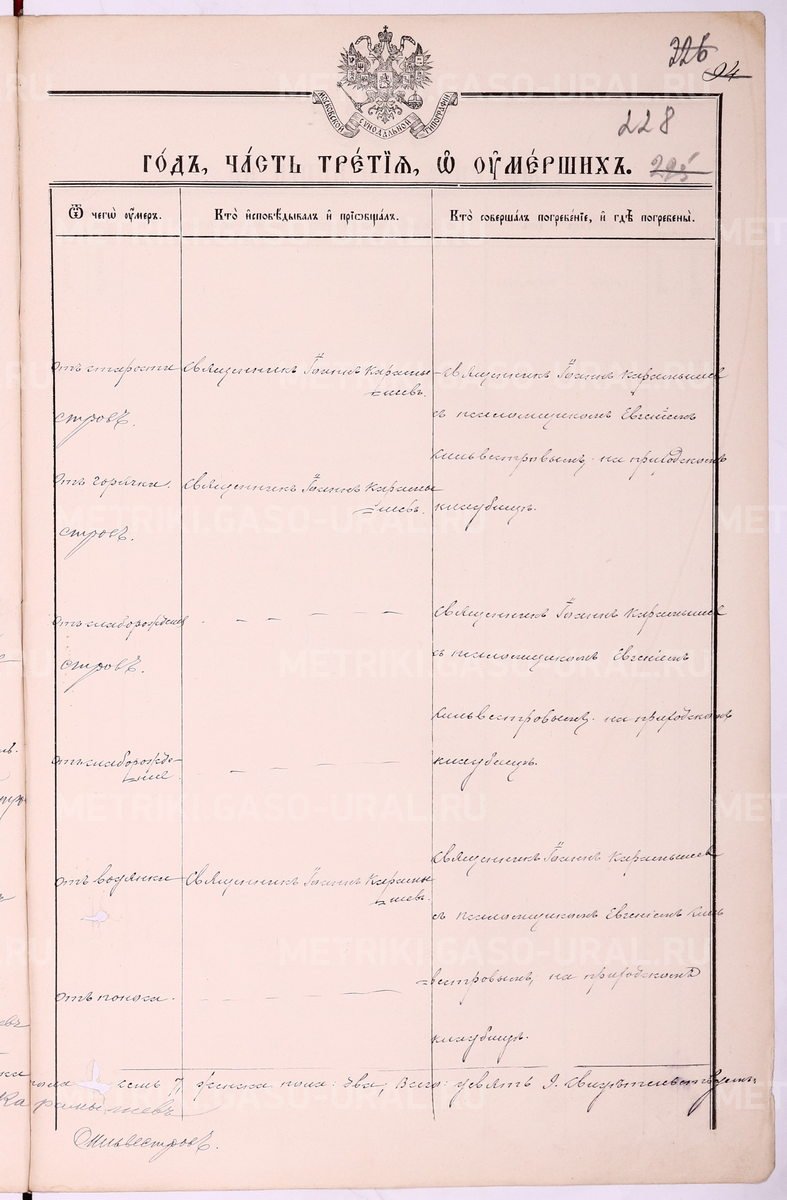 326
94
МОСКОВСКОЙ СѴНОДАЛЬНОЙ ТИПОГРАФІИ
228
ГО́ДЪ, ЧА́СТЬ ТРЕ́ТЇѦ, Ѽ ОУ҆МЕ́РШИХЪ. 225
Ѿ чегѡ̀ оу҆́мер.
Кто̀ и҆сповѣ́дывалъ и҆ прїѡбща́лъ.
Кто̀ соверша́лъ погребе́нїе, и҆ гдѣ̀ погребены̀.
отъ старости
Священникъ Іоаннъ Карамы
=шевъ.
Священникъ Іоаннъ Карамышев
съ псаломщикомъ Евгеніем
Сильвестровымъ на приходскомъ
кладбищѣ.
стровъ.
отъ горячки.
Священникъ Іоаннъ Карамы
=шевъ.
стровъ.
отъ слаборожденія
Священникъ Іоаннъ Карамышев
съ псаломщикомъ Евгеніемъ
Сильвестровымъ на приходском
кладбищѣ.
стровъ.
отъ слаборожде-
=нія.
отъ водянки
Священникъ Іоаннъ Карамы
=шевъ.
Священникъ Іоаннъ Карамышев
съ псаломщикомъ Евгеніемъ Силь
=вестровымъ, на приходскомъ
кладбищѣ.
отъ поноса.
пола семь 7, женска пола: два, Всего: девять 9. Свидѣтельствуемъ:
Карамышевъ
Сильвестровъ.
METRIKI.GASO-URAL.RU